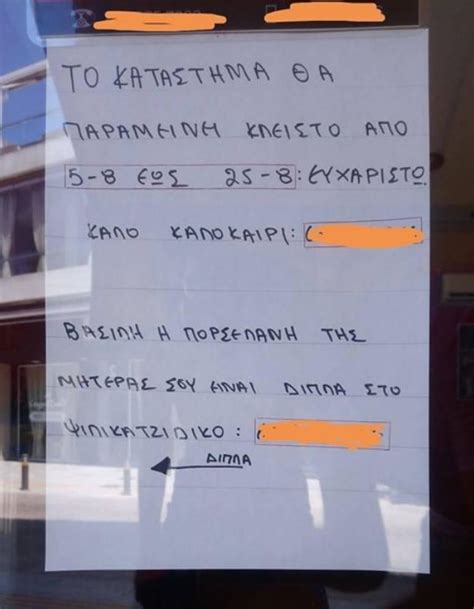 ΤΟ ΚΑΤΑΣΤΗΜΑ ΘΑ
ΠΑΡΑΜΕΙΝΗ ΚΛΕΙΣΤΟ ΑΠΟ
5-8 ΕΩΣ 25-8: ΕΥΧΑΡΙΣΤΩ.
ΚΑΛΟ ΚΑΛΟΚΑΙΡΙ:
ΒΑΣΙΛΗ Η ΠΟΡΣΕΛΑΝΗ ΤΗΣ
ΜΗΤΕΡΑΣ ΣΟΥ ΕΙΝΑΙ ΔΙΠΛΑ ΣΤΟ
ΨΙΛΙΚΑΤΖΙΔΙΚΟ :
ΔΙΠΛΑ